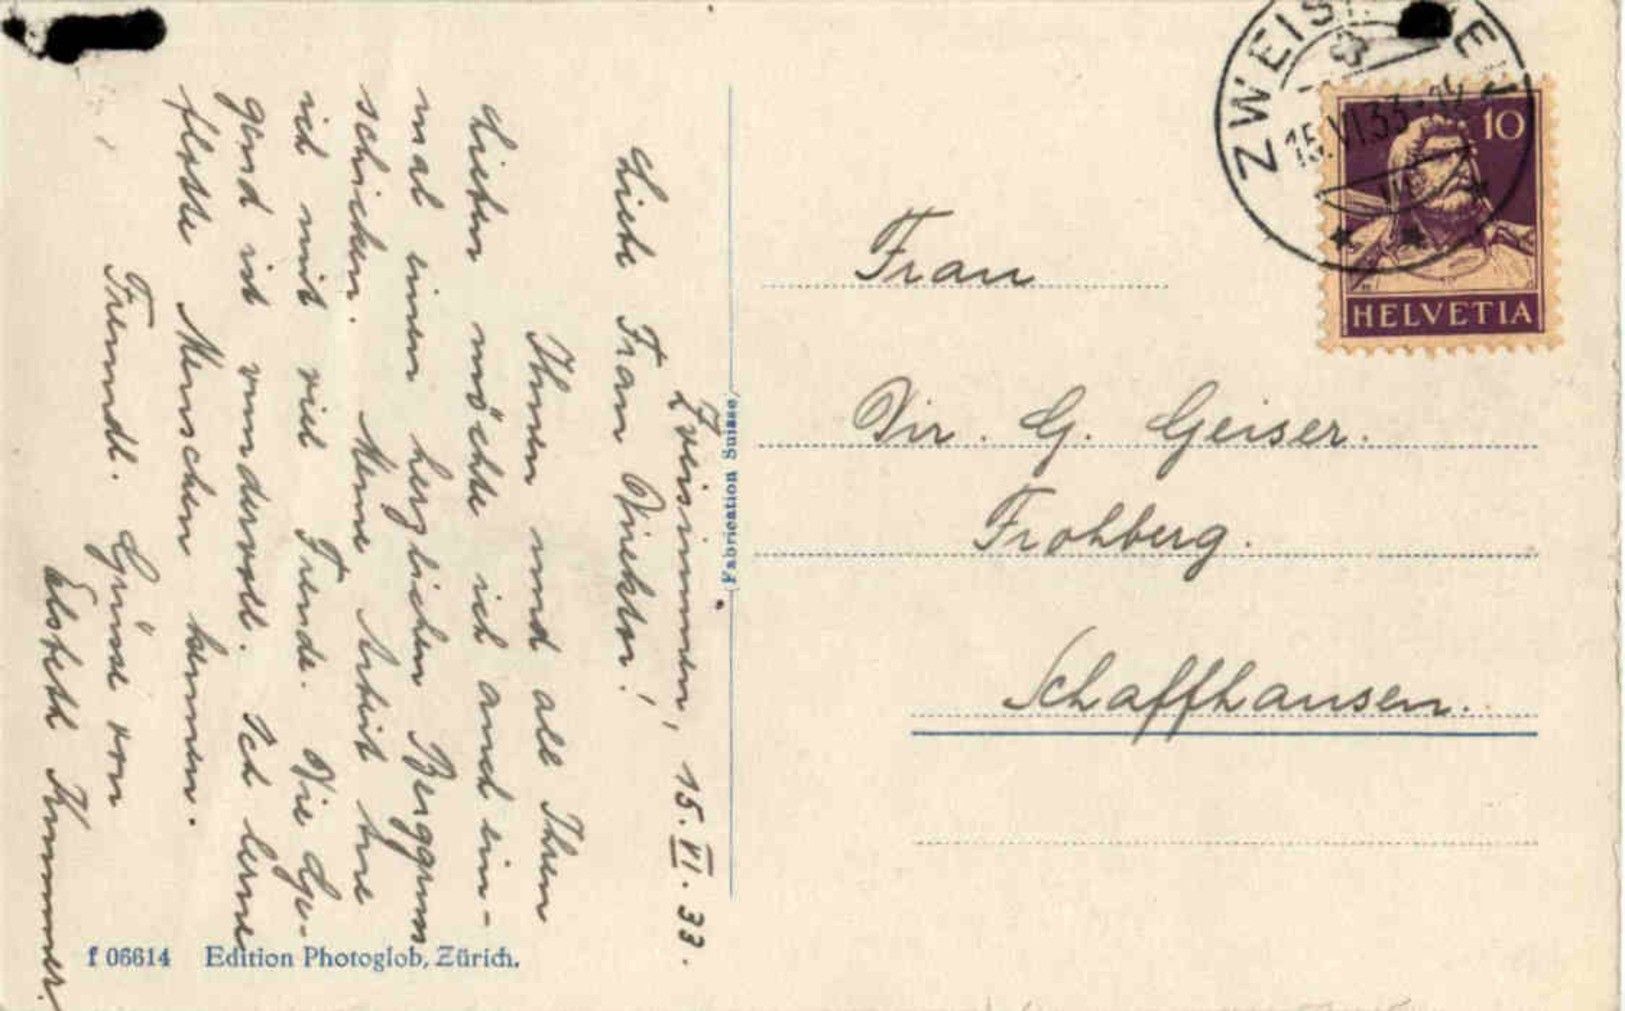 Zweisimmen, 15. VI. 33.
Liebe Frau Direktor!
Ihnen und all Ihren
Lieben möchte ich auch ein-
mal einen herzlichen Berggruss
schicken. Meine Arbeit tue
ich mit viel Freude. Die Ge-
gend ist wundervoll. Ich lerne
flotte Menschen kennen.
Freundl. Grüsse von
Elsbeth Kummer.
f 06614 Edition Photoglob, Zürich.
(Fabrication Suisse)
15.VI.33-14
10
HELVETIA
Frau
Dir. G. Geiser.
Frohberg.
Schaffhausen.